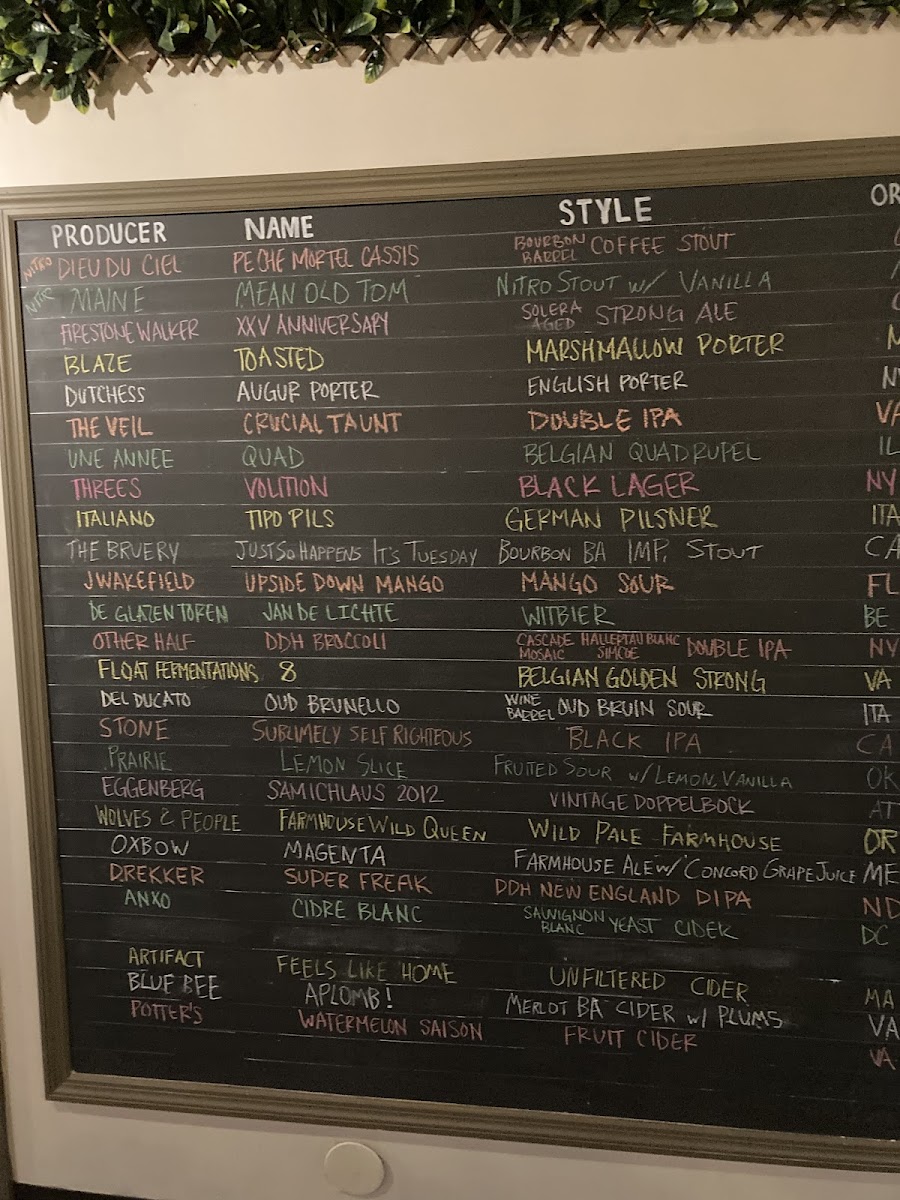 PRODUCER NAME STYLE OR
NITRO DIEU DU CIEL PECHE MORTEL CASSIS BOURBON BARREL COFFEE STOUT
NITRO MAINE MEAN OLD TOM NITRO STOUT W/ VANILLA
FIRESTONE WALKER XXV ANNIVERSARY SOLERA AGED STRONG ALE
BLAZE TOASTED MARSHMALLOW PORTER M
DUTCHESS AUGUR PORTER ENGLISH PORTER NY
THE VEIL CRUCIAL TAUNT DOUBLE IPA VA
UNE ANNEE QUAD BELGIAN QUADRUPEL IL
THREES VOLITION BLACK LAGER NY
ITALIANO TIPO PILS GERMAN PILSNER ITA
THE BRUERY JUST SO HAPPENS IT'S TUESDAY BOURBON BA IMP. STOUT CA
J WAKEFIELD UPSIDE DOWN MANGO MANGO SOUR FL
DE GLAZEN TOREN JAN DE LICHTE WITBIER BE
OTHER HALF DDH BROCCOLI CASCADE HALLERTAU BLANC MOSAIC SIMCOE DOUBLE IPA NY
FLOAT FERMENTATIONS 8 BELGIAN GOLDEN STRONG VA
DEL DUCATO OUD BRUNELLO WINE BARREL OUD BRUIN SOUR ITA
STONE SUBLIMELY SELF RIGHTEOUS BLACK IPA CA
PRAIRIE LEMON SLICE FRUITED SOUR W/ LEMON, VANILLA OK
EGGENBERG SAMICHLAUS 2012 VINTAGE DOPPELBOCK AT
WOLVES & PEOPLE FARMHOUSE WILD QUEEN WILD PALE FARMHOUSE OR
OXBOW MAGENTA FARMHOUSE ALE W/ CONCORD GRAPE JUICE ME
DREKKER SUPER FREAK DDH NEW ENGLAND DIPA ND
ANXO CIDRE BLANC SAUVIGNON BLANC YEAST CIDER DC
ARTIFACT FEELS LIKE HOME UNFILTERED CIDER MA
BLUE BEE APLOMB! MERLOT BA CIDER W/ PLUMS VA
POTTER'S WATERMELON SAISON FRUIT CIDER VA